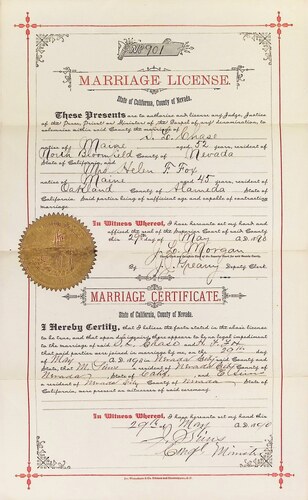 No 901
MARRIAGE LICENSE.
State of California, County of Nevada.
These Presents are to authorize and license any Judge, Justice
of the Peace, Priest or Minister of the Gospel of any denomination, to
solemnize within said County the marriage of
Chase
native of Maine aged 52 years, resident of
North Bloomfield County of Nevada
State of California and
Mrs Helen F. Fox
native of Maine aged 45 years,
Oakland County of Alameda State of
California. Said parties being of sufficient age and capable of contracting
marriage.
In Witness Whereof, I have hereunto set my hand and
affixed the seal of the Superior Court of said County
this 29th day of May A.D. 1890
J. L. Morgan
By Deputy Clerk
MARRIAGE CERTIFICATE.
State of California, County of Nevada.
I Hereby Certify, that I believe the facts stated in the above license
to be true, and that upon due inquiry there appears to be no legal impediment
to the marriage of said Chase and H. F. Fox
that said parties were joined in marriage by me, on the 29th
May A.D. 1890 in Nevada City said County and
State, that M. a resident of Nevada City County of
Nevada State of Calif and
a resident of Nevada City County of Nevada State of
California, were present as witnesses of said ceremony.
In Witness Whereof, I have hereunto set my hand this
29th of May A.D. 1890
J. Sims
Congl Minister